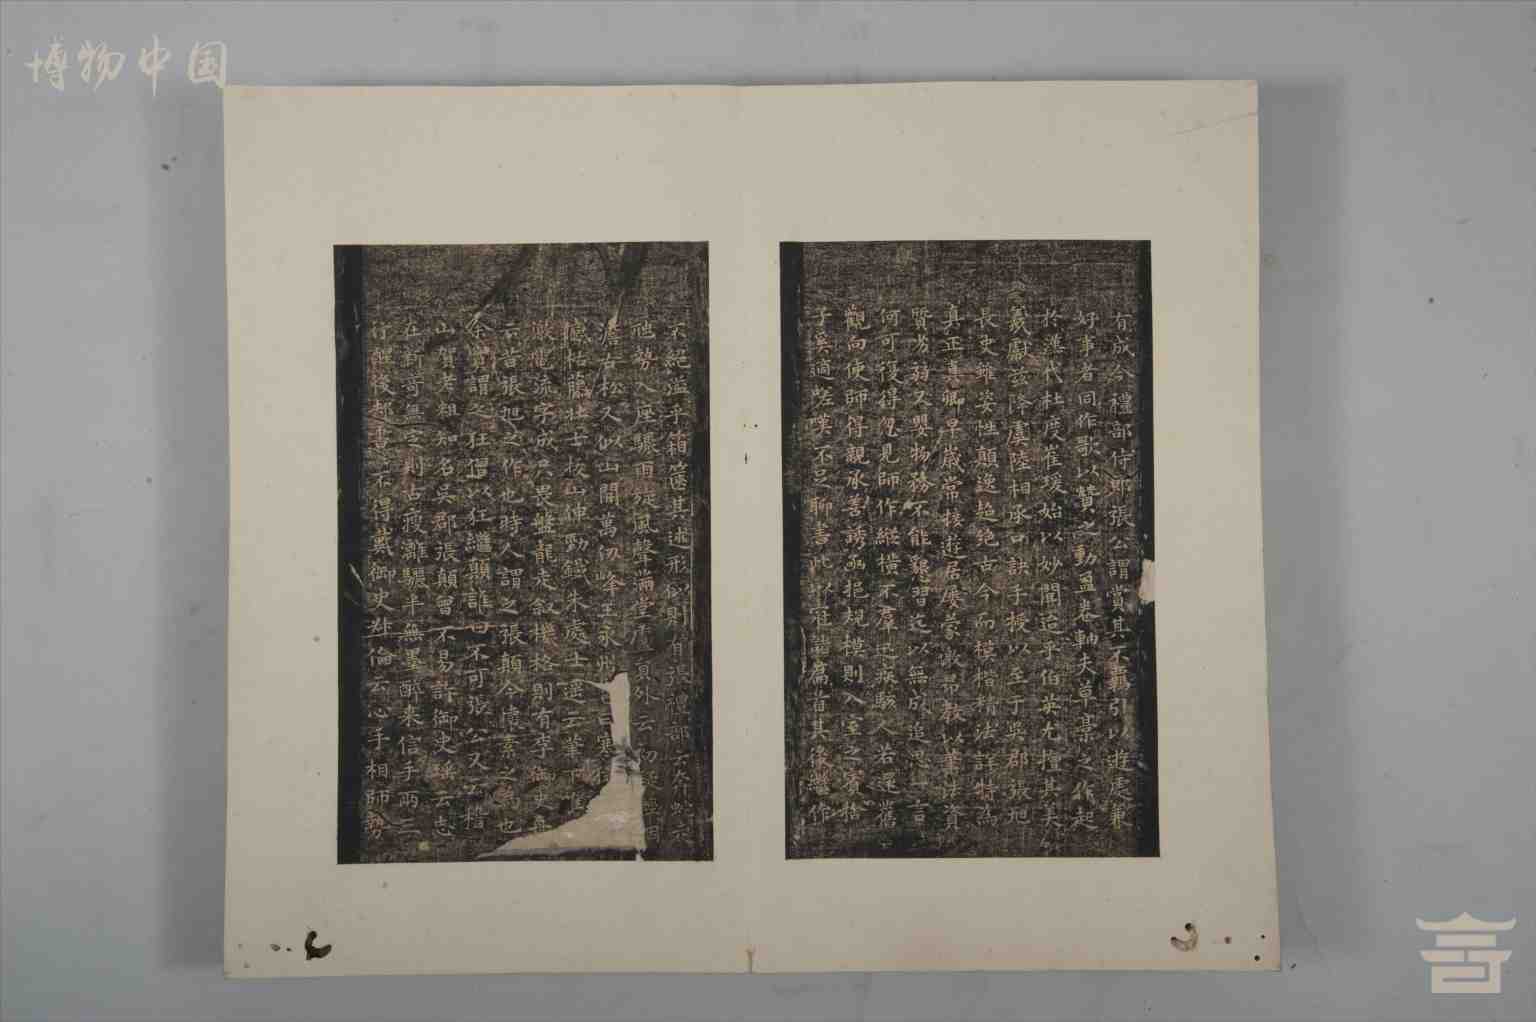 博物中国
有成公禮部侍郎張公謂賞其不羈引以遊處兼
好事者同作歌以贊之動盈卷軸夫草藁之作起
於漢代杜度崔瑗始以妙聞迨乎伯英尤擅其美
羲獻茲降虞陸相承口訣手授以至于吳郡張旭
長史雖姿性顛逸超絕古今而模楷精法詳特為
真正真卿早歲常接遊居屢蒙激昂教以筆法資
質劣弱又嬰物務不能懇習迄以無成追思一言
何可復得忽見師作縱橫不羣迅疾駭人若還舊
觀向使師得親承善誘亟挹規模則入室之賓捨
子奚適嗟嘆不足聊書此以冠諸篇首其後繼作
不絕溢乎箱篋其述形似則有張禮部云奔蛇走
虺勢入座驟雨旋風聲滿堂盧員外云初疑輕烟
澹古松又似山開萬仞峰王永州邕曰寒猿
撼枯藤壯士拔山伸勁鐵朱處士遙云筆下唯
激電流字成只畏盤龍走敘機格則有李御史舟
云昔張旭之作也時人謂之張顛今懷素之為也
余實謂之狂僧以狂繼顛誰曰不可張公又云稽
山賀老粗知名吳郡張顛曾不易許御史瑤云志
在新奇無定則古瘦灕驪半無墨醉來信手兩三
行醒後却書書不得戴御史叔倫云心手相師勢